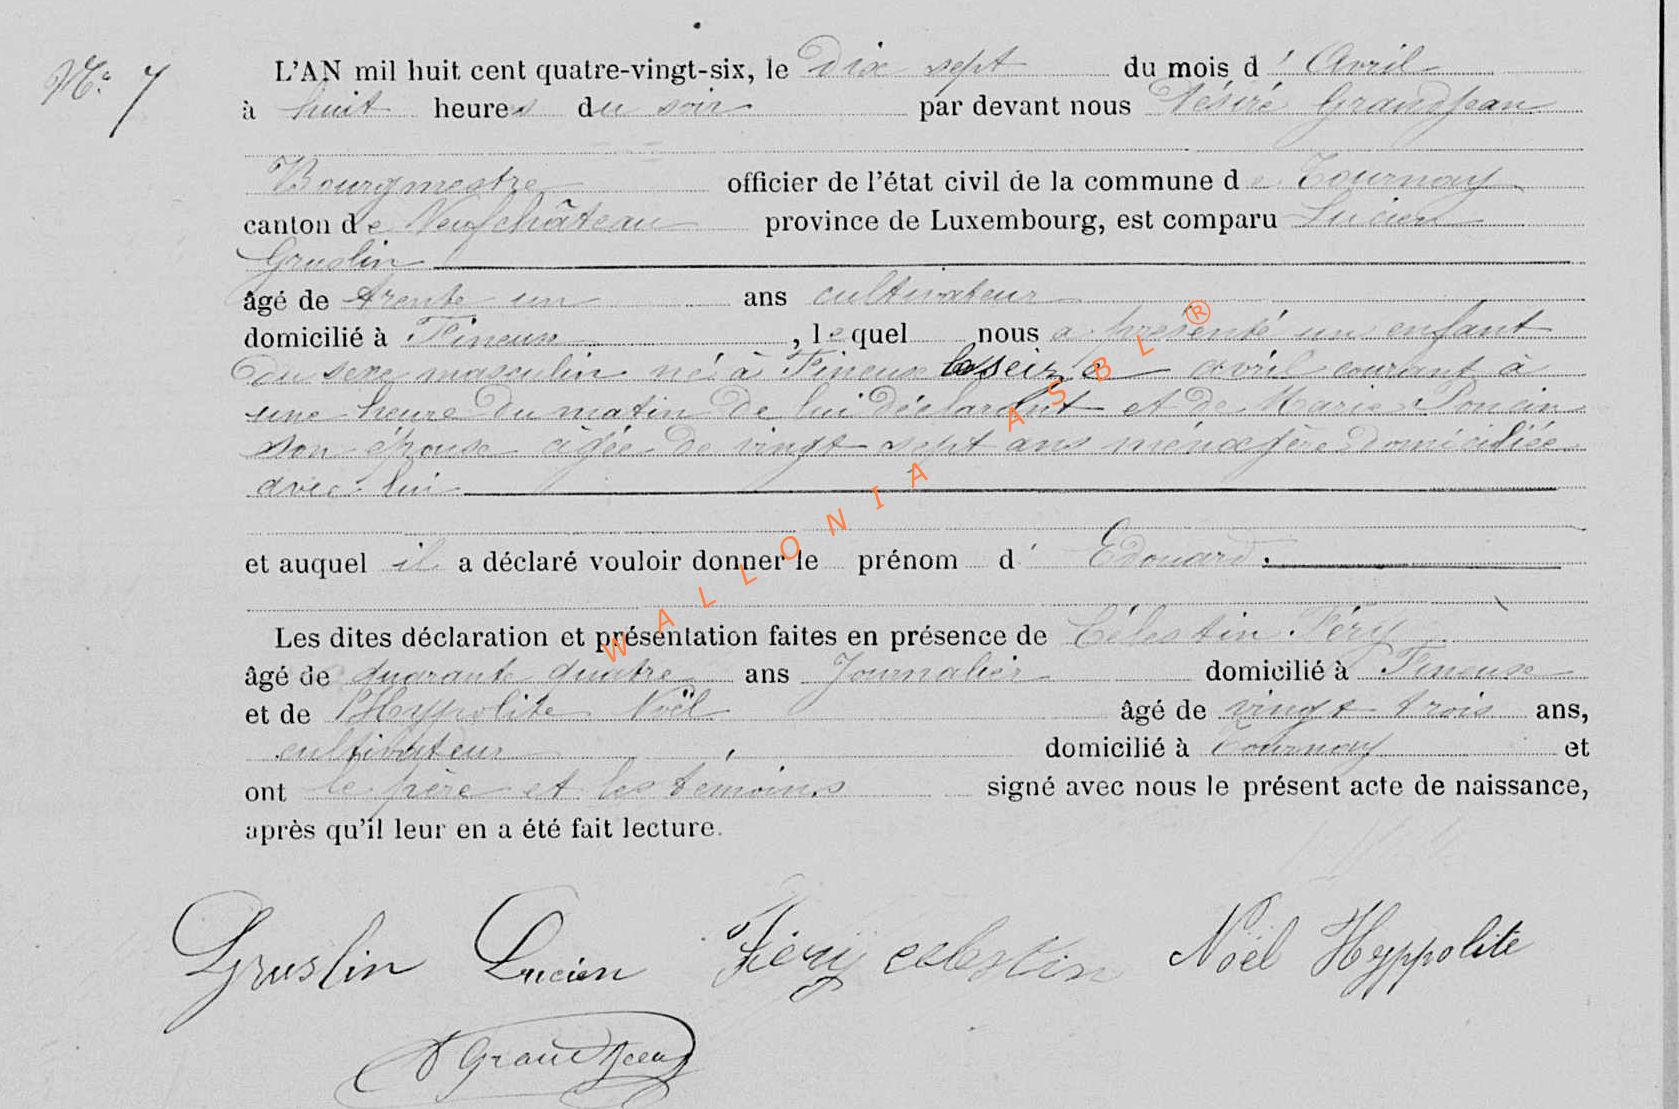 N° 7
L'AN mil huit cent quatre-vingt-six, le Dix sept du mois d' Avril
à huit heures du soir par devant nous Désiré Grandjean
Bourgmestre officier de l'état civil de la commune de Tournay
canton de Neufchâteau province de Luxembourg, est comparu Lucien
Gruslin
âgé de trente un ans cultivateur
domicilié à Fineuse, lequel nous a présenté un enfant
du sexe masculin né à Fineuse le seize avril courant à
une heure du matin de lui déclarant et de Marie Poncin
son épouse âgée de vingt sept ans ménagère domiciliée
avec lui
et auquel il a déclaré vouloir donner le prénom d' Edouard.
Les dites déclaration et présentation faites en présence de Célestin Féry
âgé de quarante quatre ans Journalier domicilié à Fineuse
et de Hyppolite Noël âgé de vingt trois ans,
cultivateur, domicilié à Tournay et
ont le père et les témoins signé avec nous le présent acte de naissance,
après qu'il leur en a été fait lecture.
Gruslin Lucien Féry celestin Noël Hyppolite
D Grandjean
WALLONIA ASBL ®